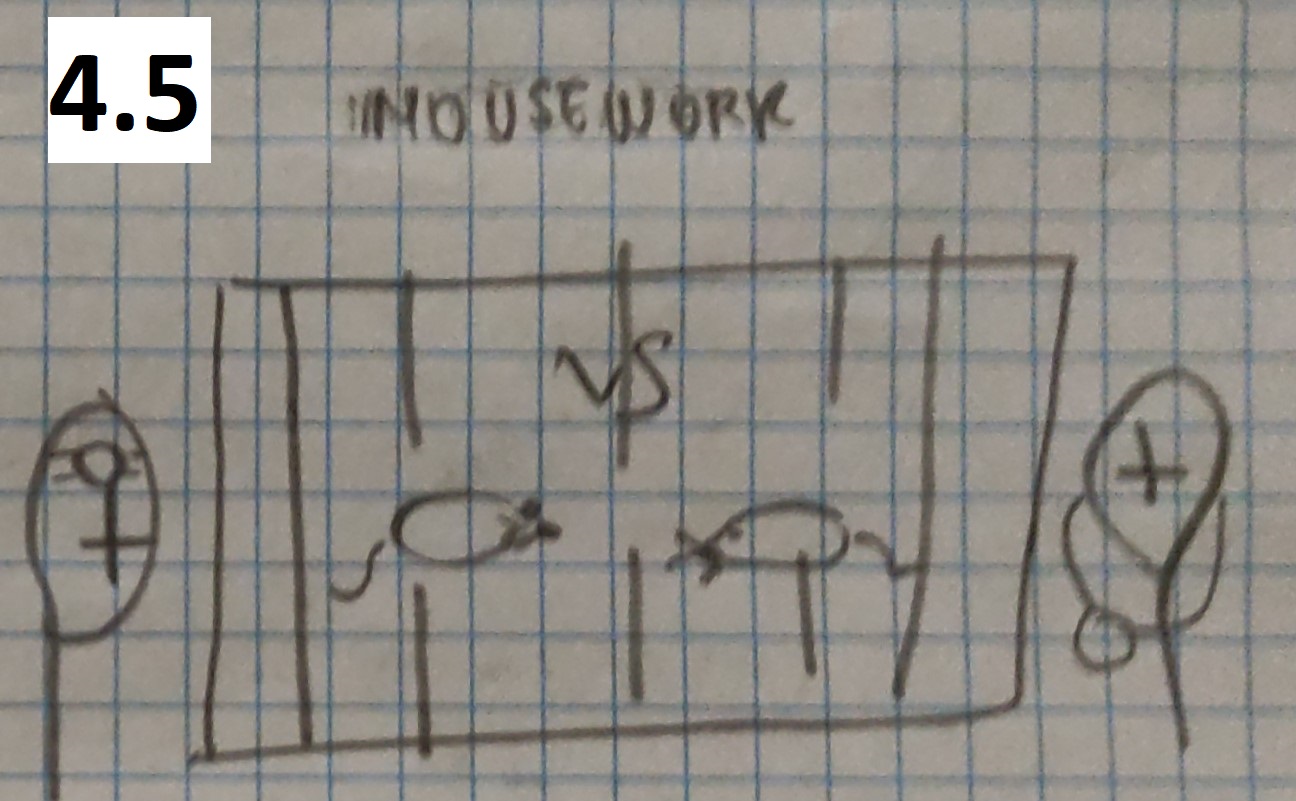 4.5
MOUSEWORK
VS